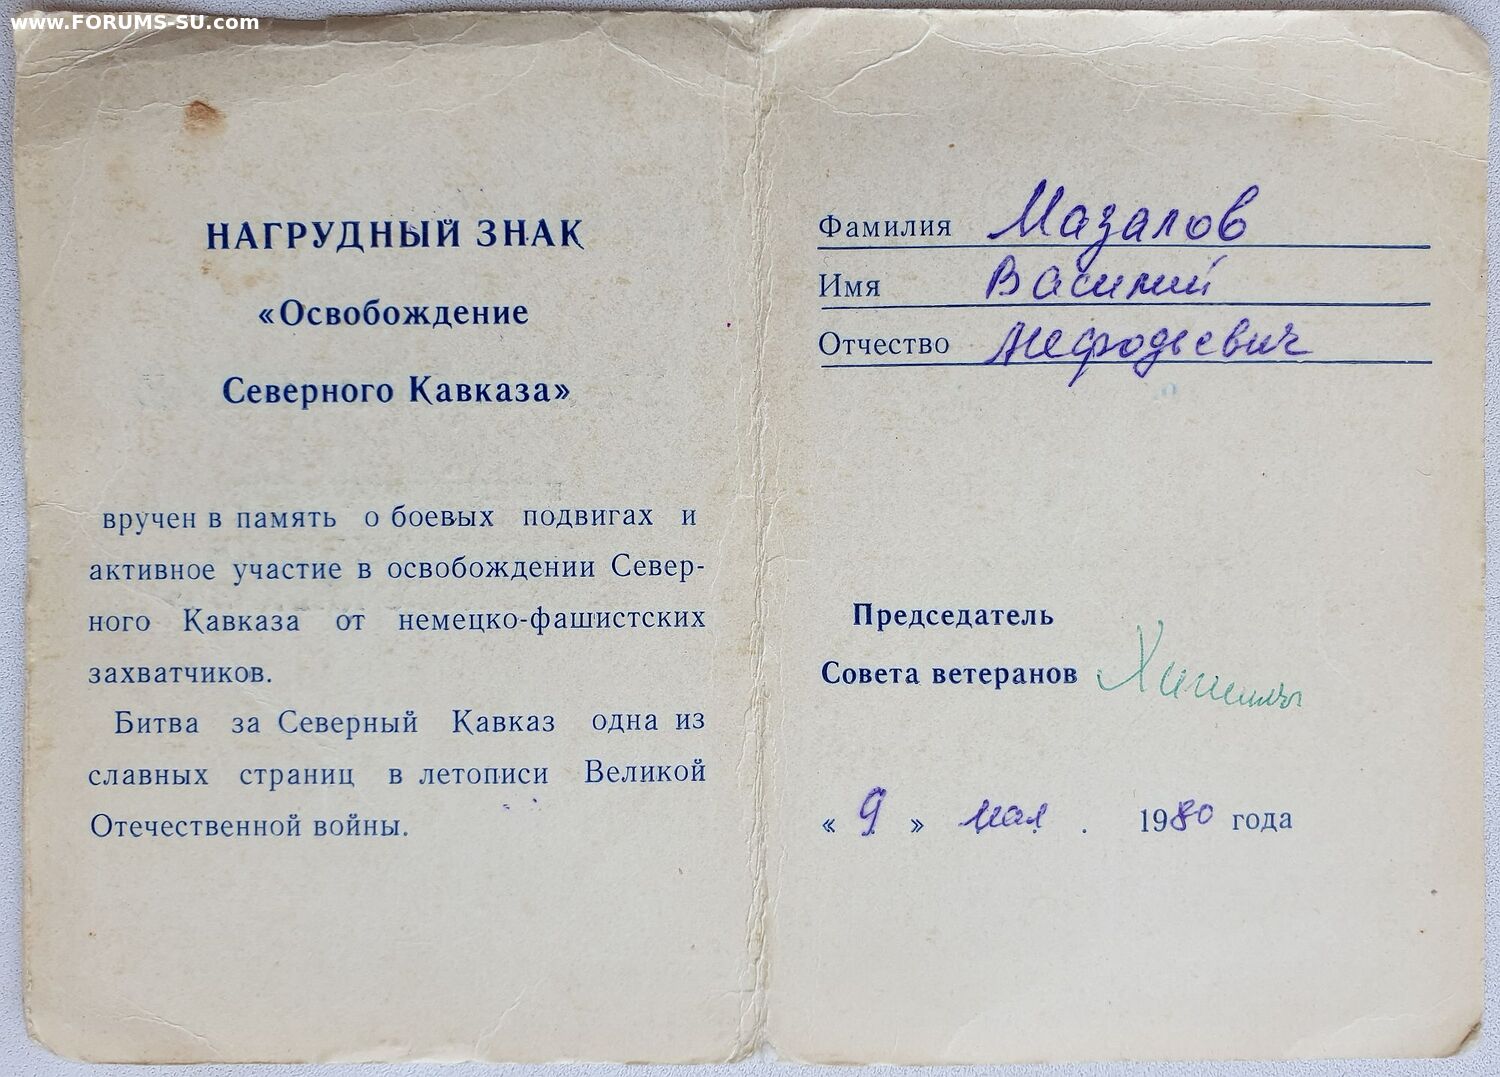 www.FORUMS-SU.com
НАГРУДНЫЙ ЗНАК
«Освобождение
Северного Кавказа»
вручен в память о боевых подвигах и
активное участие в освобождении Север-
ного Кавказа от немецко-фашистских
захватчиков.
Битва за Северный Кавказ одна из
славных страниц в летописи Великой
Отечественной войны.
Фамилия Мазалов
Имя Василий
Отчество Мефодьевич
Председатель
Совета ветеранов
« 9 » мая . 1980 года